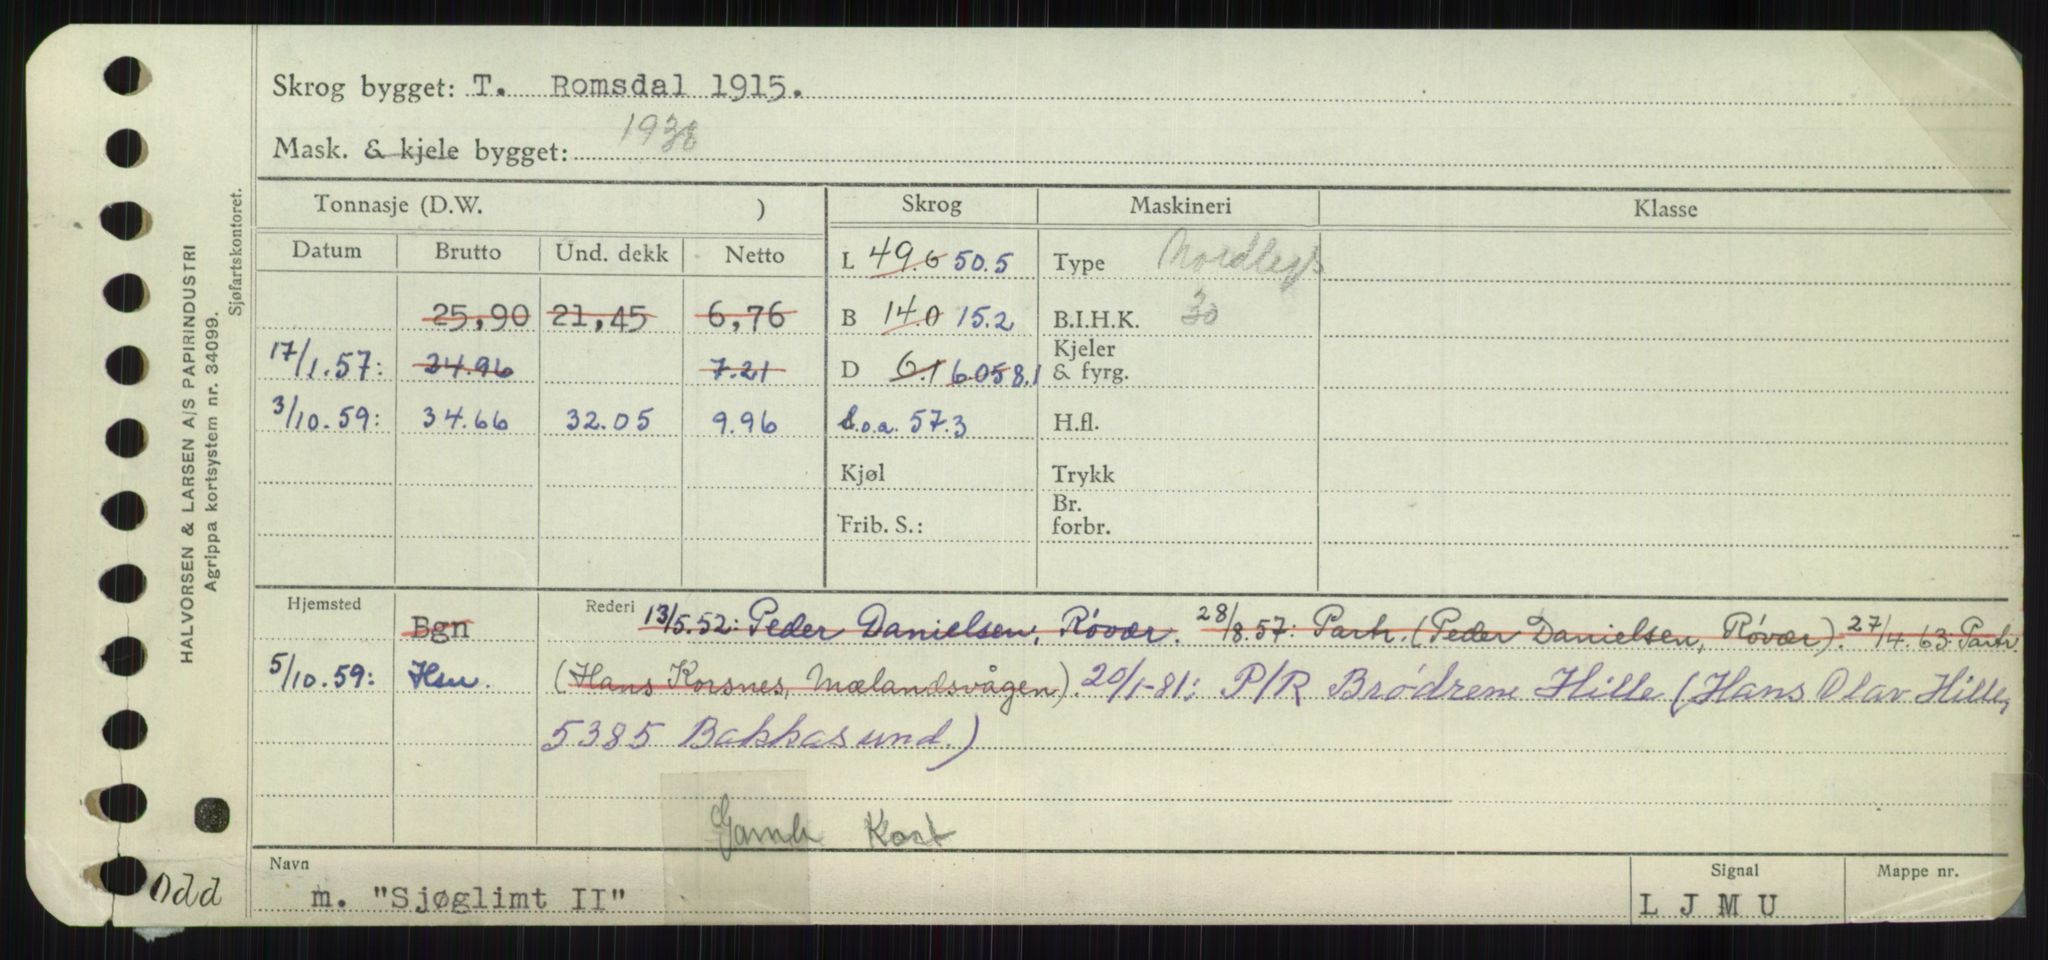 HALVORSEN & LARSEN A/S PAPIRINDUSTRI
Agrippa kortsystem nr. 34099.
Sjøfartskontoret.
Skrog bygget: T. Romsdal 1915.
Mask. & kjele bygget: 1938
Tonnasje (D.W. ) Skrog Maskineri Klasse
Datum Brutto Und. dekk Netto L 49.6 50.5 Type
25,90 21,45 6,76 B 14.0 15.2 B.I.H.K. 30
17/1.57: 24.96 7.21 D 6.1 6.05 8.1 Kjeler & fyrg.
3/10.59: 34.66 32.05 9.96 L.o.a. 57.3 H.fl.
Kjøl Trykk
Frib. S.: Br. forbr.
Hjemsted Rederi
Bgn 13/5.52: Peder Danielsen, Røvær. 28/8.57: Partr. (Peder Danielsen, Røvær). 27/4.63: Partr.
5/10.59: Hsu. (Hans Korsnes, Mælandsvågen). 20/1-81: P/R Brødrene Hille (Hans Olav Hille,
5385 Bakkasund.)
Gamle Kort
Navn Signal Mappe nr.
Odd m. "Sjøglimt II" L J M U